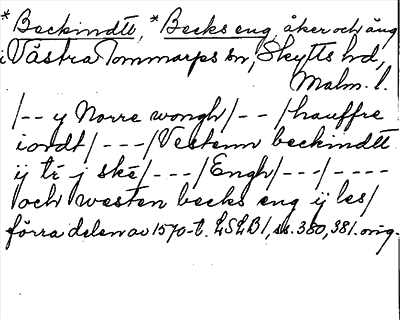 * Beckindtt, * Becks eng, åker och äng
i Västra Tommarps sn, Skytts hd,
Malm. l.
/-- y Norre wongh/-- /hauffre
iordt/---/Vestenn beckindtt
ij tr j ske/---/Engh/---/----
och westen becks eng ij les/
förra delen av 1570-t. LSLB1, ss. 380, 381. orig.